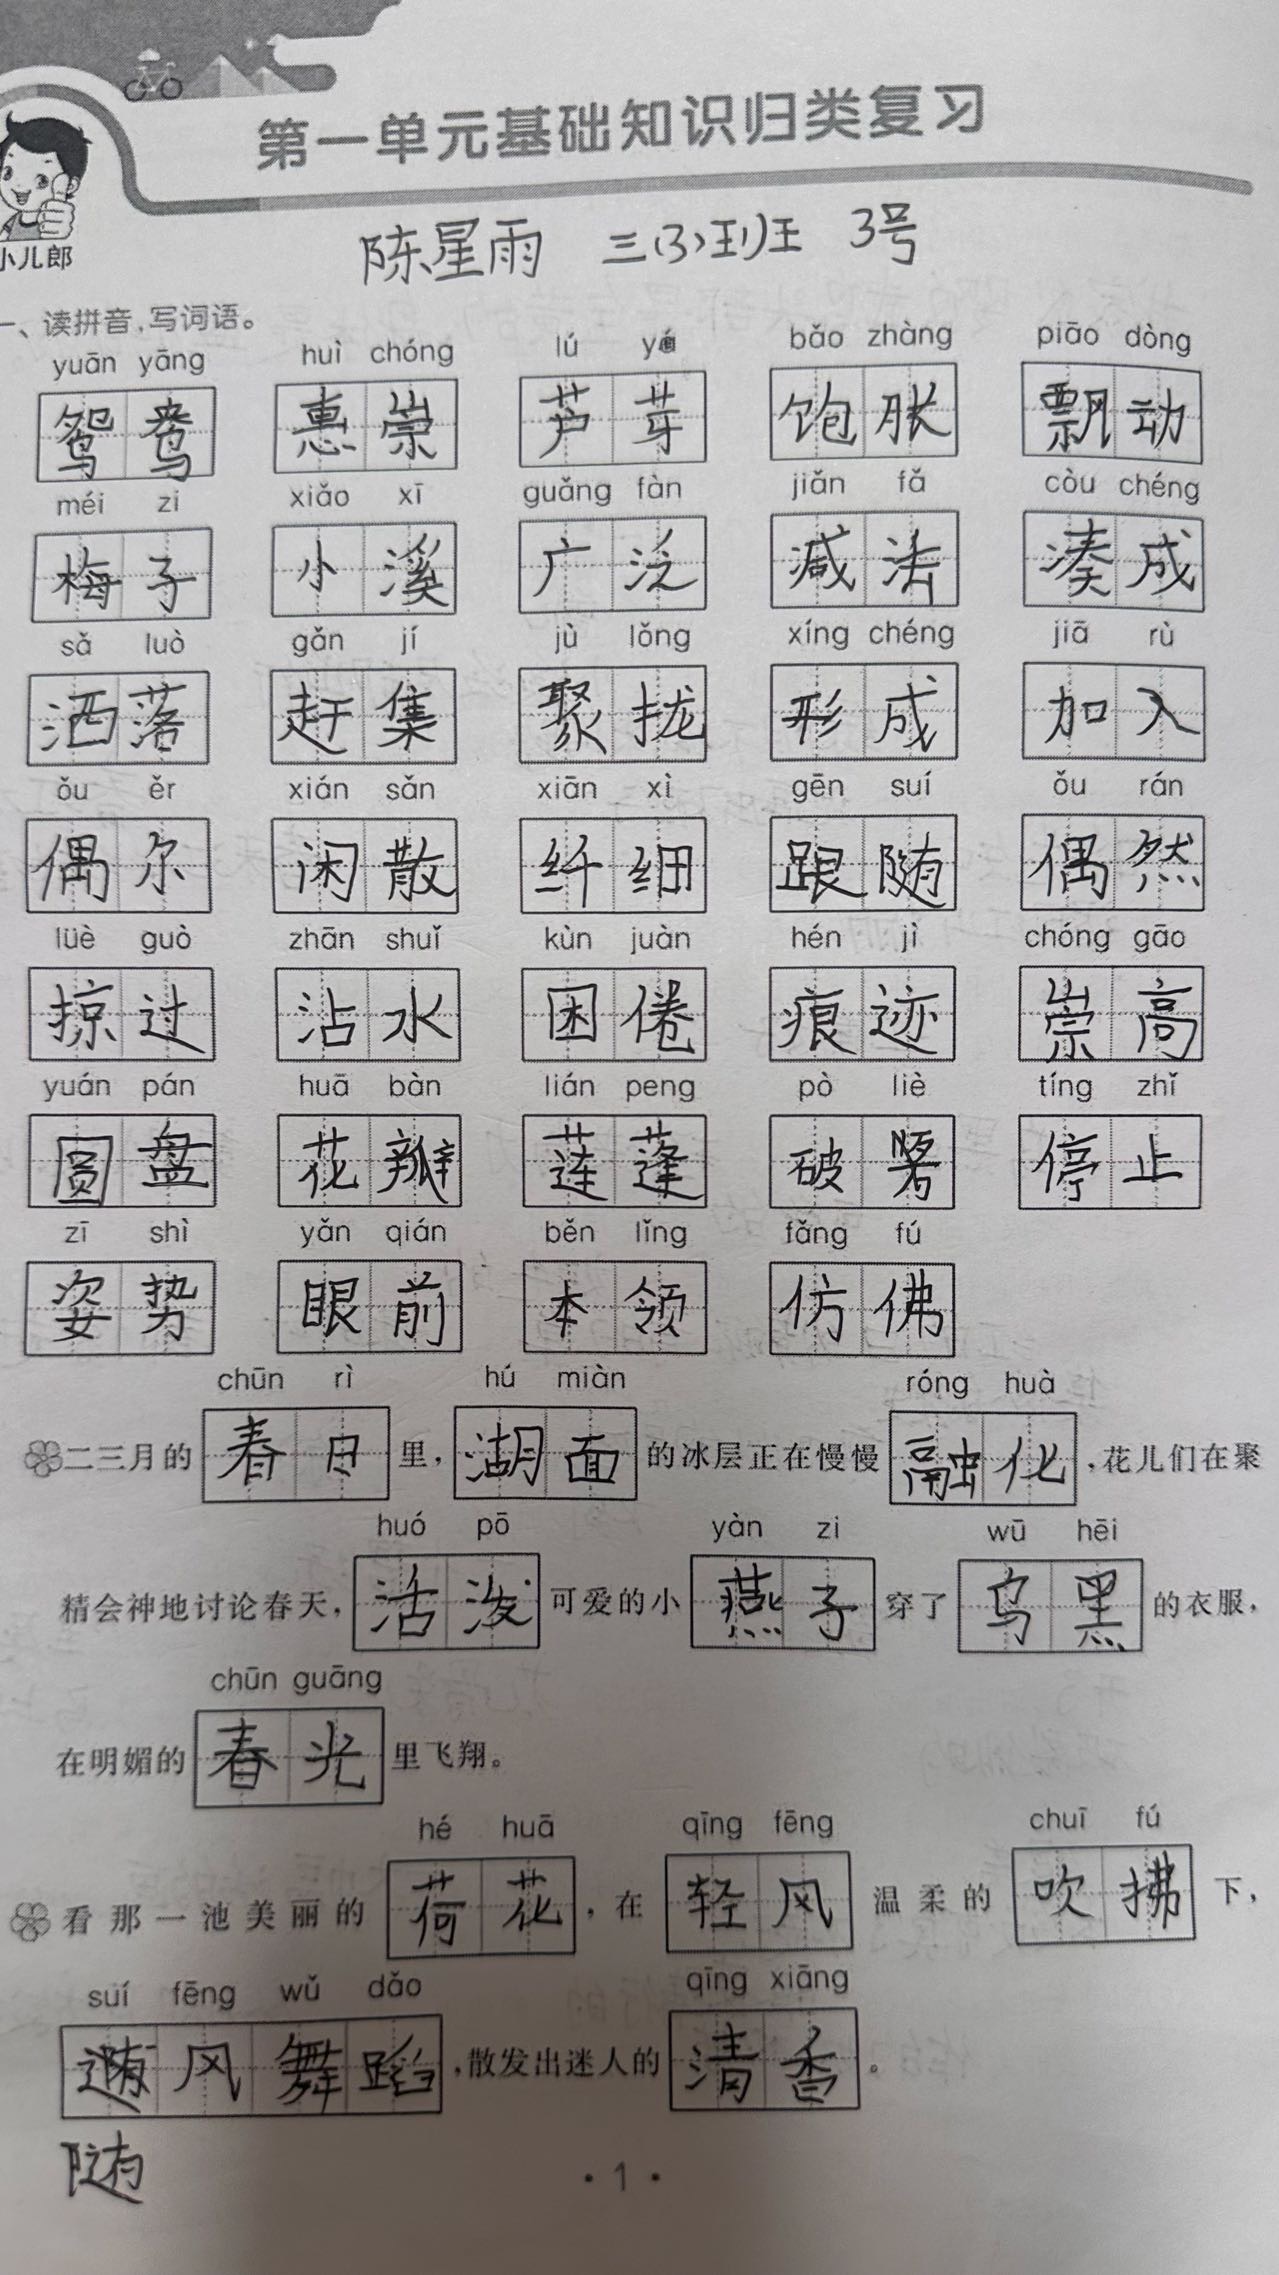 第一单元基础知识归类复习
小儿郎
陈星雨 三(3)班 3号
一、读拼音，写词语。
yuān yāng huì chóng lú yá bǎo zhàng piāo dòng
鸳鸯 惠崇 芦芽 饱胀 飘动
méi zi xiǎo xī guǎng fàn jiǎn fǎ còu chéng
梅子 小溪 广泛 减法 凑成
sǎ luò gǎn jí jù lǒng xíng chéng jiā rù
洒落 赶集 聚拢 形成 加入
ǒu ěr xián sǎn xiān xì gēn suí ǒu rán
偶尔 闲散 纤细 跟随 偶然
lüè guò zhān shuǐ kùn juàn hén jì chóng gāo
掠过 沾水 困倦 痕迹 崇高
yuán pán huā bàn lián peng pò liè tíng zhǐ
圆盘 花瓣 莲蓬 破 停止
zī shì yǎn qián běn lǐng fǎng fú
姿势 眼前 本领 仿佛
chūn rì hú miàn róng huà
二三月的 春日 里，湖面 的冰层正在慢慢 融化 ，花儿们在聚
huó pō yàn zi wū hēi
精会神地讨论春天，活泼 可爱的小 燕子 穿了 乌黑 的衣服，
chūn guāng
在明媚的 春光 里飞翔。
hé huā qīng fēng chuī fú
看那一池美丽的 荷花 ，在 轻风 温柔的 吹拂 下，
suí fēng wǔ dǎo qīng xiāng
风舞蹈 ，散发出迷人的 清香 。
随
·1·